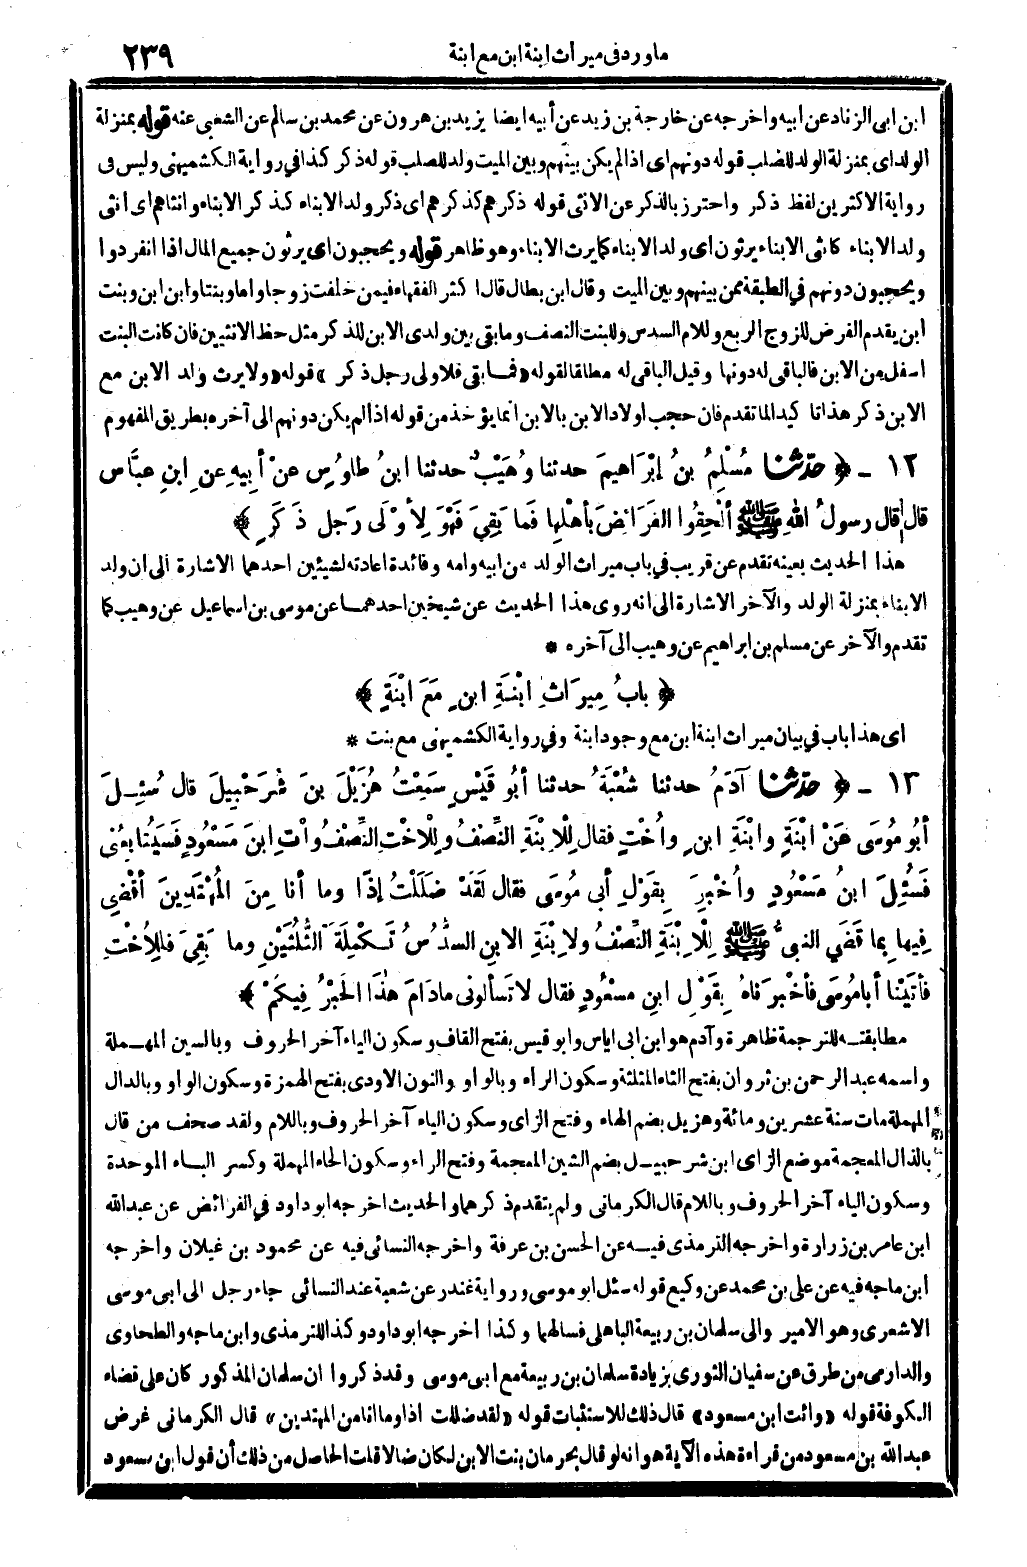 ماورد فى ميراث ابنة ابن مع ابنة ٢٣٩
ابن ابى الزناد عن أبيه واخرجه عن خارجة بن زيد عن أبيه ايضا يزيد بن هرون عن محمد بن سالم عن الشعبى عنه قوله بمنزلة
الولد اى بمنزلة الولد للصلب قوله دونهم اى اذا لم يكن بينهم وبين الميت ولد للصلب قوله ذكر كذا فى رواية الكشميهنى وليس فى
رواية الاكثرين لفظ ذكر واحترز بالذكر عن الانثى قوله ذكرهم كذكرهم اى ذكر ولد الابناء كذكر الابناء وانثاهم اى انثى
ولد الابناء كانثى الابناء يرثون اى ولد الابناء كما يرث الابناء وهو ظاهر قوله ويحجبون اى يرثون جميع المال اذا انفردوا
ويحجبون دونهم فى الطبقة ممن بينهم وبين الميت وقال ابن بطال قال اكثر الفقهاء فيمن خلفت زوجا واما وبنتا وابن ابن وبنت
ابن يقدم الفرض للزوج الربع وللام السدس وللبنت النصف وما بقى بين ولدى الابن للذكر مثل حظ الانثيين فان كانت البنت
اسفل من الابن فالباقى له دونها وقيل الباقى له مطلقا لقوله «فما بقى فلاولى رجل ذكر» قوله «ولا يرث ولد الابن مع
الابن ذكر هذا تاكيد الما تقدم فان حجب اولاد الابن بالابن انما يؤخذ من قوله اذا لم يكن دونهم الى آخره بطريق المفهوم
١٢ ـ ﴿ حدّثنا مُسْلِمُ بنُ إبْرَاهيمَ حدثنا وُهَيْبٌ حدثنا ابنُ طاوُسٍ عنْ أبِيهِ عنِ ابنِ عبَّاسٍ
قال قال رسولُ اللهِ ﷺ ألْحِقُوا الفَرَائِضَ بأهْلِها فَما بَقِيَ فَهْوَ لِأوْلَى رَجلٍ ذَكَرٍ ﴾
هذا الحديث بعينه تقدم عن قريب فى باب ميراث الولد من ابيه وامه وفائدة اعادته لشيئين احدهما الاشارة الى ان ولد
الابناء بمنزلة الولد والآخر الاشارة الى انه روى هذا الحديث عن شيخين احدهما عن موسى بن اسماعيل عن وهيب كما
تقدم والآخر عن مسلم بن ابراهيم عن وهيب الى آخره *
﴿ بابُ مِيرَاثِ ابْنَةِ ابنٍ مَعَ ابْنَةٍ ﴾
اى هذا باب فى بيان ميراث ابنة ابن مع وجود ابنة وفى رواية الكشميهنى مع بنت *
١٣ ـ ﴿ حدّثنا آدَمُ حدثنا شُعْبَةُ حدثنا أبُو قَيْسٍ سَمِعْتُ هُزَيْلَ بنَ شُرَحْبِيلَ قال سُئِـلَ
أبُو مُوسَى عَنْ ابْنَةٍ وابْنَةِ ابنٍ وأُخْتٍ فقال لِلْابْنَةِ النِّصْفُ ولِلْاخْتِ النِّصْفُ وأْتِ ابنَ مَسْعُودٍ فَسَيُتابِعُنى
فَسُئِلَ ابنُ مَسْعُودٍ وأُخْبِرَ بِقَوْلِ أبى مُوسَى فقال لَقَدْ ضَلَلْتُ إذًا وما أنا مِنَ المُهْتَدِينَ أقْضِى
فِيها بِما قَضَي النبىُّ ﷺ لِلْابْنَةِ النِّصْفُ ولِابْنَةِ الابنِ السدُسُ تَـكْمِلَةَ الثُّلُثَيْنِ وما بَقِيَ فَلِلْأخْتِ
فأتَيْنا أبامُوسَى فأخْبَرْناهُ بِقَوْلِ ابنِ مسْعُودٍ فقال لاتَسألونى مادَامَ هٰذَا الحَبْرُ فِيكُمْ ﴾
مطابقتـه للترجمة ظاهرة وآدم هو ابن ابى اياس وابو قيس بفتح القاف وسكون الياء آخر الحروف وبالسين المهـملة
واسمه عبد الرحمن بن ثروان بفتح الثاء المثلثة وسكون الراء وبالواو والنون الاودى بفتح الهمزة وسكون الواو وبالدال
المهملة مات سنة عشرين ومائة وهزيل بضم الهاء وفتح الزاى وسكون الياء آخر الحروف وباللام ولقد صحف من قال
بالذال المعجمة موضع الزاى ابن شرحبيـل بضم الشين المعجمة وفتح الراء وسكون الحاء المهملة وكسر البـاء الموحدة
وسكون الياء آخر الحروف وباللام قال الكرمانى ولم يتقدم ذكرهما والحديث اخرجه ابو داود فى الفرائض عن عبدالله
ابن عامر بن زرارة واخرجه الترمذى فيـه عن الحسن بن عرفة واخرجه النسائى فيه عن محمود بن غيلان واخرجه
ابن ماجه فيه عن على بن محمد عن وكيع قوله سئل ابو موسى ورواية غندر عن شعبة عند النسائى جاء رجل الى ابى موسى
الاشعرى وهو الامير والى سلمان بن ربيعة الباهلى فسالهما وكذا اخرجه ابو داود وكذا للترمذى وابن ماجه والطحاوى
والدارمى من طرق عن سفيان الثورى بزيادة سلمان بن ربيعة مع ابى موسى وقد ذكروا ان سلمان المذكور كان على قضاء
الكوفة قوله «وائت ابن مسعود» قال ذلك للاستثبات قوله «لقد ضللت اذا وما انا من المهتدين» قال الكرمانى غرض
عبدالله بن مسعود من قراءة هذه الآية هو انه لو قال بحرمان بنت الابن لكان ضالا قلت الحاصل من ذلك أن قول ابن مسعود